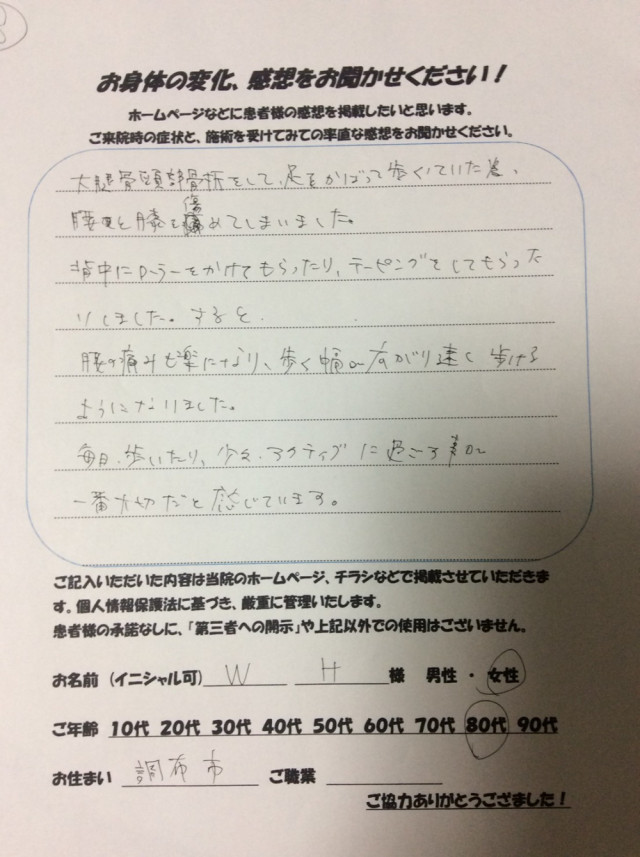 お身体の変化、感想をお聞かせください！
ホームページなどに患者様の感想を掲載したいと思います。
ご来院時の症状と、施術を受けてみての率直な感想をお聞かせください。
大腿骨頭部骨折をして、足をかばって歩くていた為、
腰とと膝を傷めてしまいました。
背中にローラーをかけてもらったり、テーピングをしてもらった
りしました。すると、
腰の痛みも楽になり、歩く幅が広がり速く歩ける
ようになりました。
毎日、歩いたり、少々、アクティブに過ごる事が
一番大切だと感じています。
ご記入いただいた内容は当院のホームページ、チラシなどで掲載させていただきま
す。個人情報保護法に基づき、厳重に管理いたします。
患者様の承諾なしに、「第三者への開示」や上記以外での使用はございません。
お名前（イニシャル可） W H 様 男性 ・ 女性
ご年齢 10代 20代 30代 40代 50代 60代 70代 80代 90代
お住まい 調布市 ご職業
ご協力ありがとうござました！